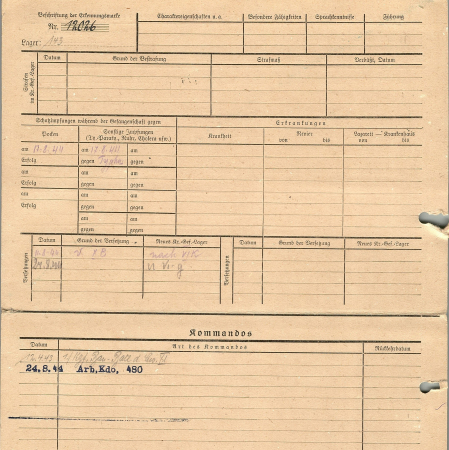 Beschriftung der Erkennungsmarke
Nr. 12026
Lager: 143
Charaktereigenschaften u. a.
Besondere Fähigkeiten
Sprachkenntnisse
Führung
Strafen im Kr.-Gef.-Lager
Datum
Grund der Bestrafung
Strafmaß
Verbüßt, Datum
Schutzimpfungen während der Gefangenschaft gegen
Erkrankungen
Pocken
Sonstige Impfungen
(Ty.-Paraty., Ruhr, Cholera usw.)
Krankheit
Revier
von bis
Lazarett — Krankenhaus
von bis
am 17.8.44 am 17.8.44 am
Erfolg gegen gegen
am am am
Erfolg gegen gegen
am am am
Erfolg gegen gegen
am am
gegen gegen
Versetzungen
Datum
Grund der Versetzung
Neues Kr.-Gef.-Lager
Versetzungen
Datum
Grund der Versetzung
Neues Kr.-Gef.-Lager
Kommandos
Datum
Art des Kommandos
Rückkehrdatum
24.8.44 Arb,Kdo, 480